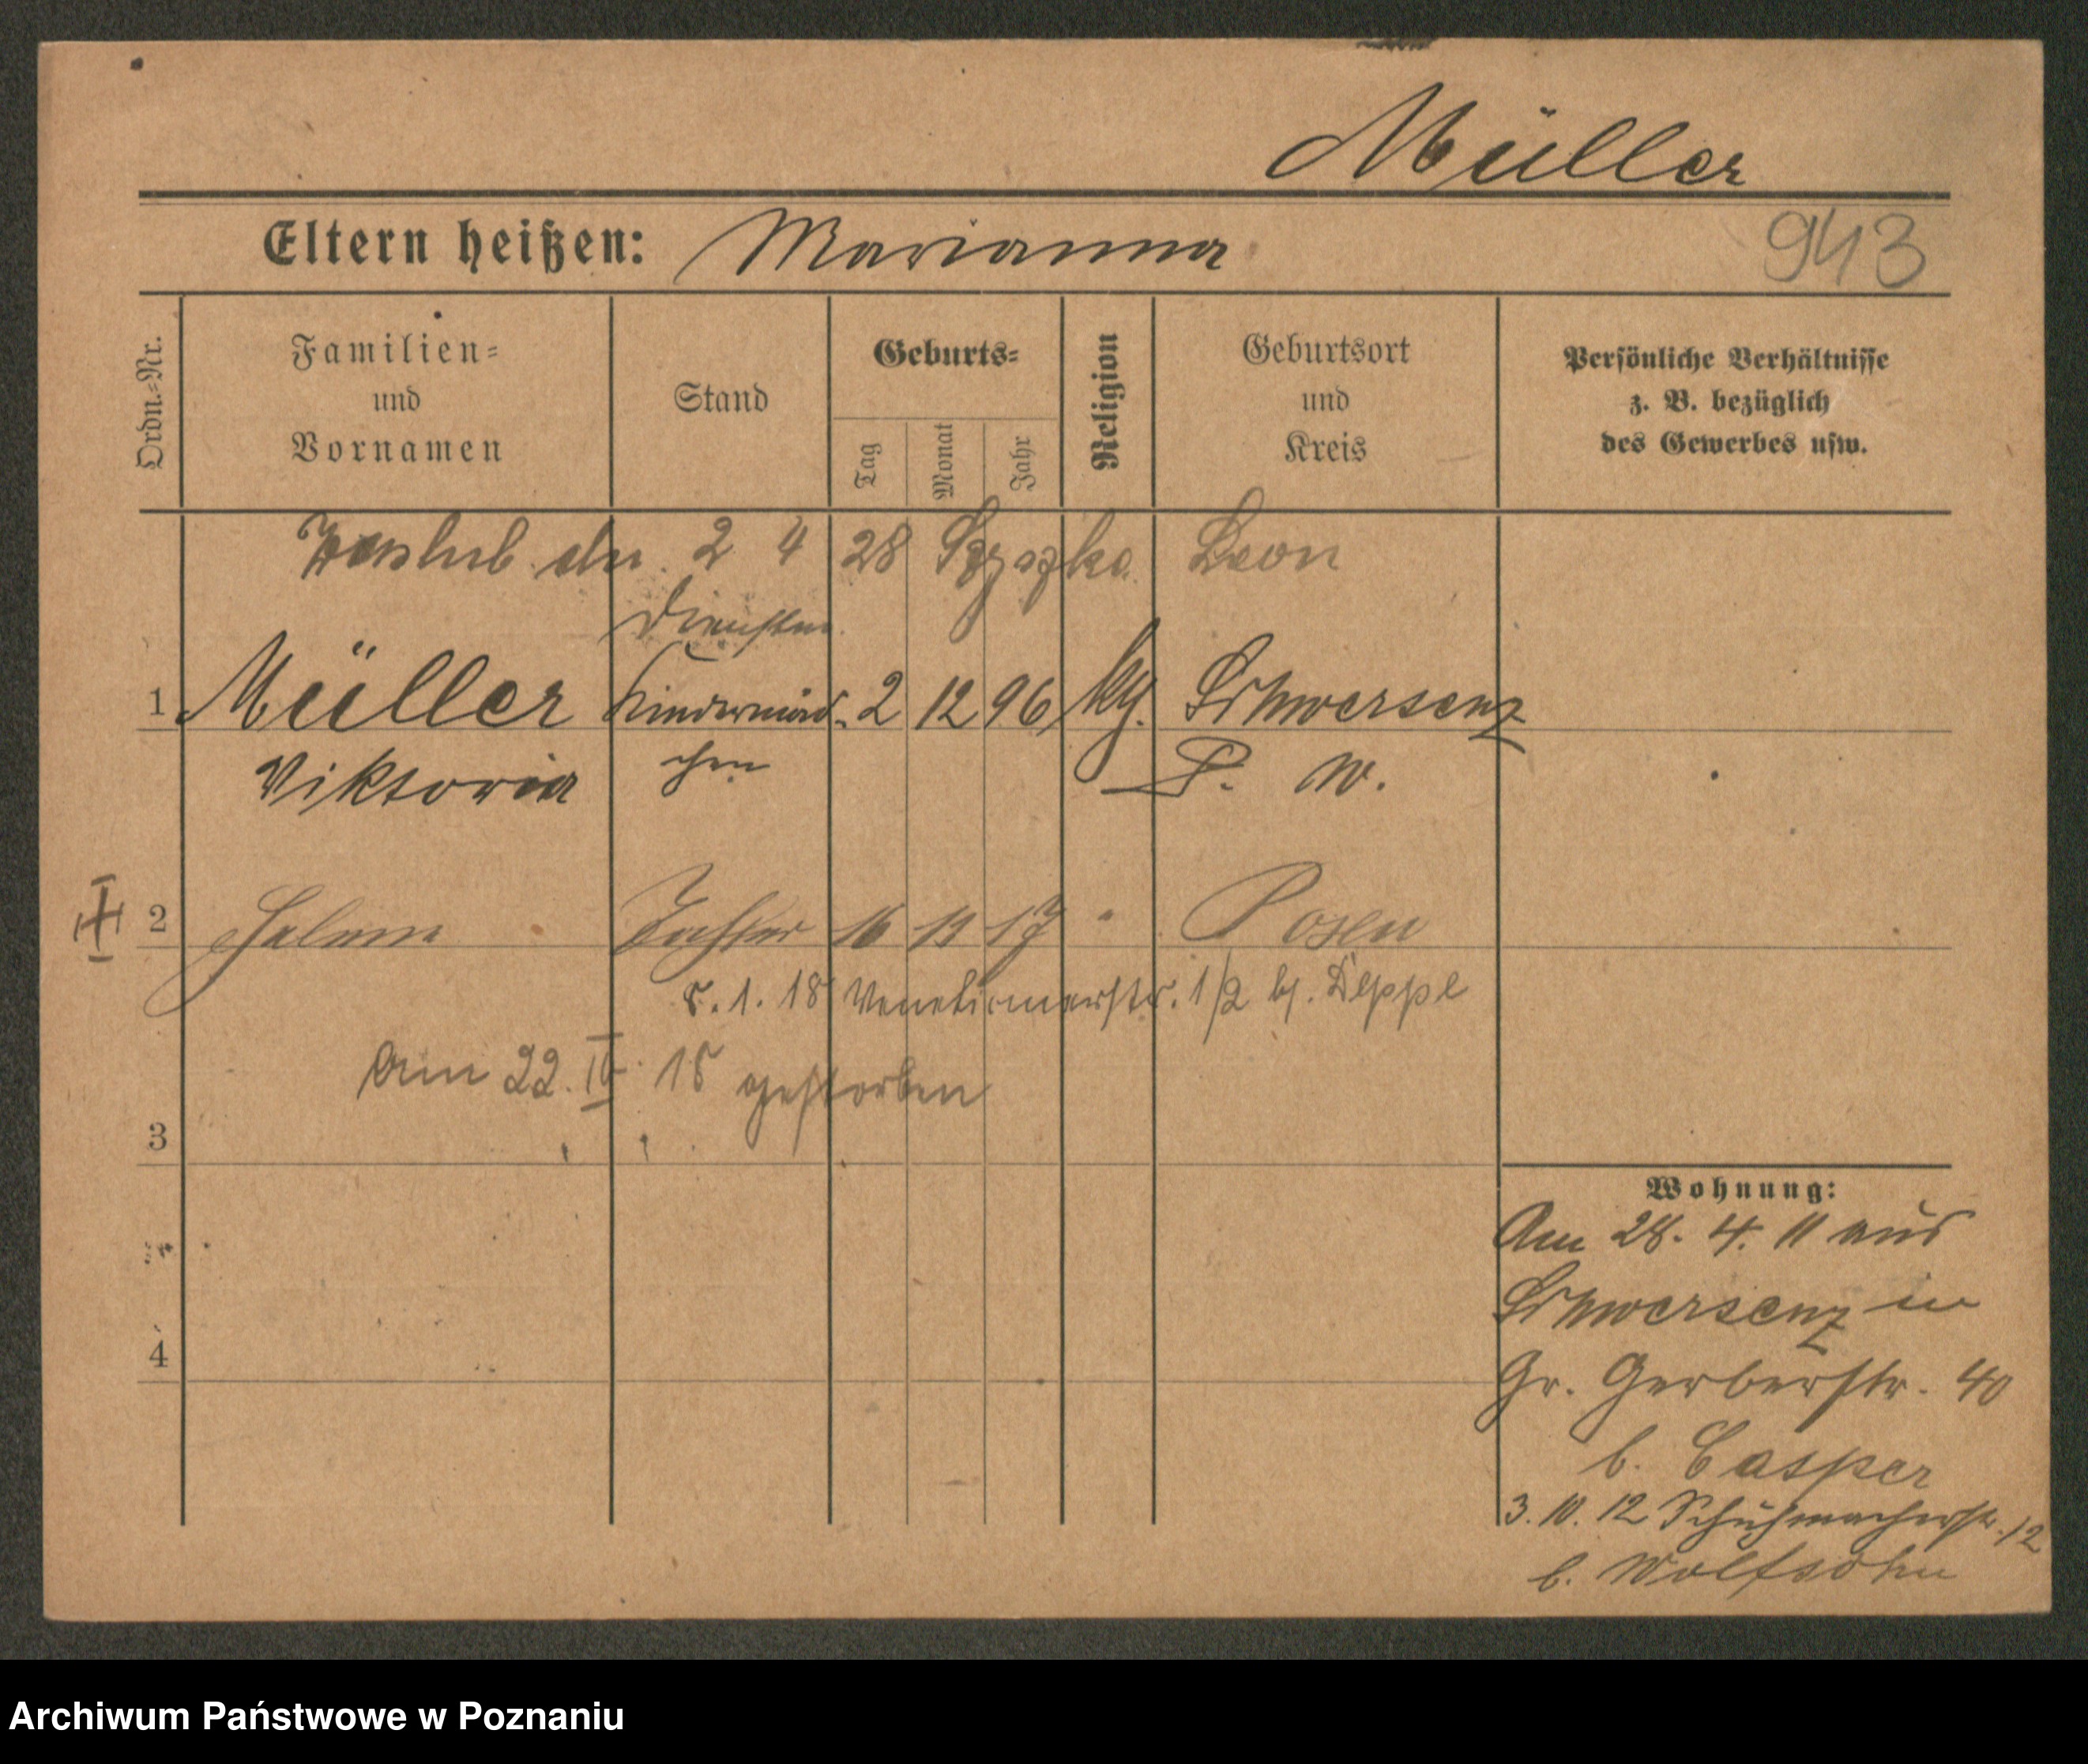 Müller
Eltern heißen: Marianna
943
Ordn.-Nr.
Familien-
und
Vornamen
Stand
Geburts-
Tag
Monat
Jahr
Religion
Geburtsort
und
Kreis
Persönliche Verhältnisse
z. B. bezüglich
des Gewerbes usw.
2 4 28 Leon
1 Müller Kindermäd- 2 12 96 kg. Schwersenz
Viktoria chen P. W.
2 Tochter 16 11 17 " Posen
5. 1. 18 Venetianerstr. 1/2 bj. Deppe
Am 22. IV. 18 gestorben
3
4
Wohnung:
Am 28. 4. 11 aus
Schwersenz in
Gr. Gerberstr. 40
b. Casper
3. 10. 12 Schuhmacherstr. 12
b. Wolfsohn
Archiwum Państwowe w Poznaniu